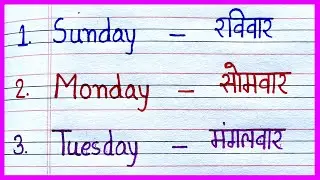 1. Sunday – रविवार
2. Monday – सोमवार
3. Tuesday – मंगलवार